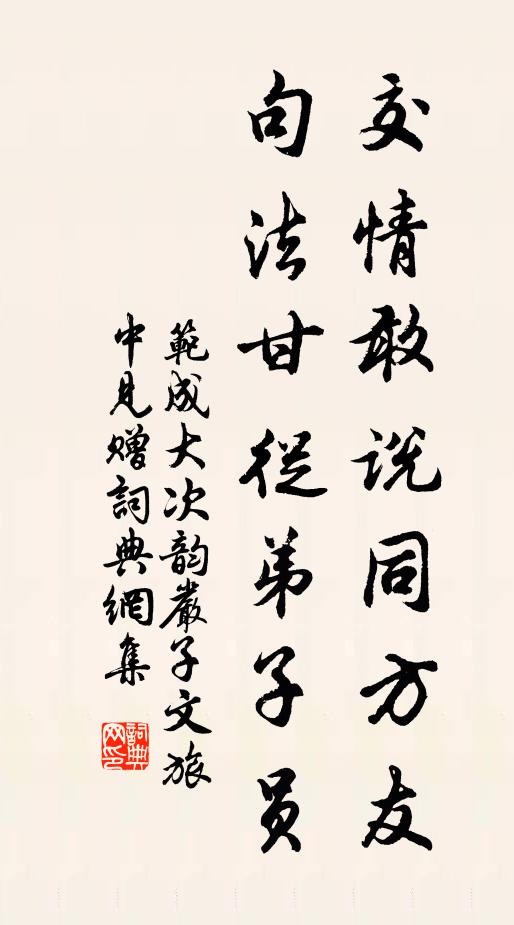 交情敢说同方友
句法甘從弟子員
範成大次韵嚴子文旅
中見赠詞典網集
詞典
网印